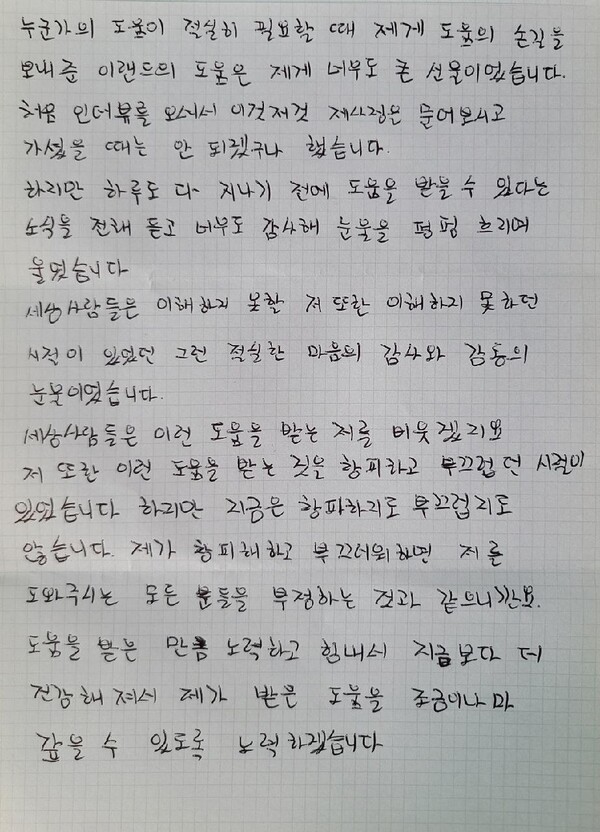 누군가의 도움이 적실히 필요할 때 제게 도움의 손길을
보내준 이랜드의 도움은 제게 너무도 큰 선물이었습니다.
처음 인터뷰를 오셔서 이것저것 제사정은 물어보시고
가셨을 때는 안 되겠구나 했습니다.
하지만 하루도 다 지나기 전에 도움을 받을 수 있다는
소식을 전해 듣고 너무도 감사해 눈물을 펑펑 흐리며
울었습니다
세상사람들은 이해하지 못할 저 또한 이해하지 못하던
시절이 있었던 그런 적실한 마음의 감사와 감동의
눈물이었습니다.
세상사람들은 이런 도움을 받는 저를 비웃겠지요
저 또한 이런 도움을 받는 것을 창피하고 부끄럽던 시절이
있었습니다 하지만 지금은 창피하지도 부끄럽지도
않습니다. 제가 창피해하고 부끄러워하면 저를
도와주시는 모든 분들을 부정하는 것과 같으니깐요.
도움을 받은 만큼 노력하고 힘내서 지금보다 더
건강해져서 제가 받은 도움을 조금이나마
갚을 수 있도록 노력하겠습니다